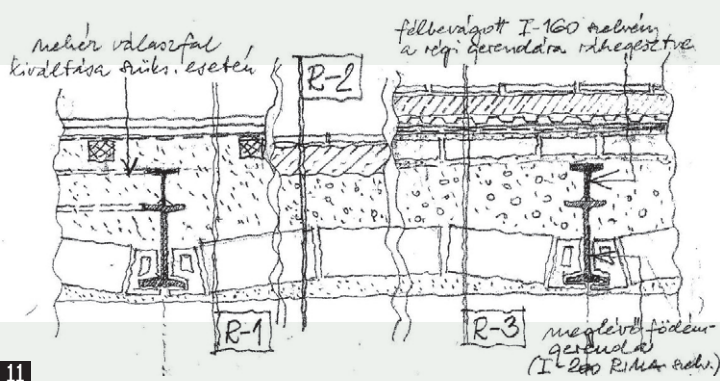 nehéz válaszfal
kiváltása szüks. esetén
R-2
félbevágott I-160 szelvény
a régi gerendára ráhegesztve
R-1
R-3
meglévő födém-
gerenda
(I-200 RIMA szelv.)
11